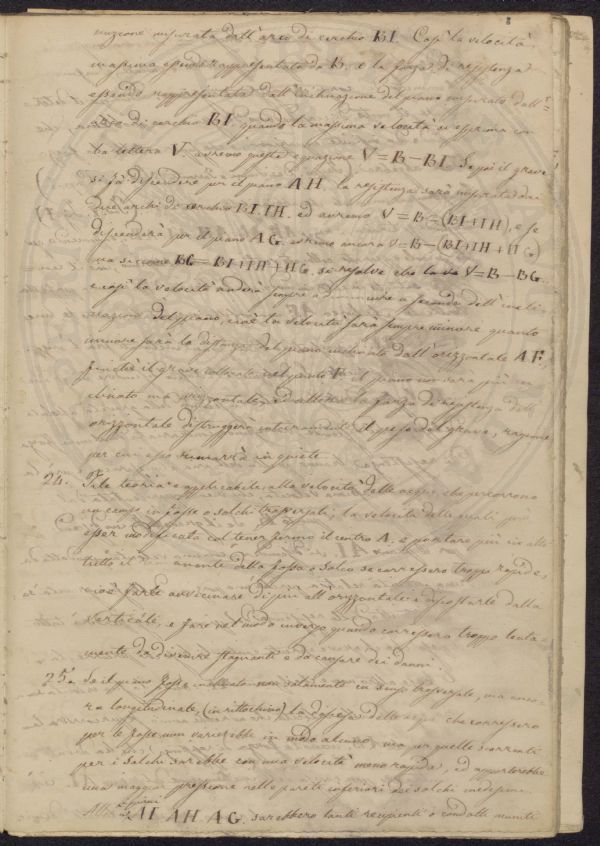 nuzione misurata dall'arco di cerchio BI. Così la velocità
massima essendo rappresentata da B. e la forza di resistenza
essendo rappresentata dall'inclinazione del piano misurata dall'
arco di cerchio BI quando la massima velocità si esprima con
la lettera V. avremo questa equazione V = B - BI. Se poi il grave
si fà discendere per il piano AH. la resistenza sarà misurata dai
due archi di cerchio BI. IH. ed avremo V = B - (BI + IH), e se
discenderà per il piano AG. avremo ancora V = B - (BI + IH + HG)
ma siccome BG = BI + IH + HG. si resolve che la va V = B - BG
e così la velocità anderà sempre a seconda dell'incli-
nazione del piano, cioè la velocità sarà sempre minore quanto
minore sarà la distanza del piano inclinato dall'orizzontale AF.
finchè il grave collocato nel punto F. il piano non sarà più in-
clinato ma orizzontale, ed allora la forza di resistenza dell'
orizzontale distruggerà interamente il peso del grave, ragione
per cui esso rimarrà in quiete.
24. Tale teoria è applicabile alla velocità delle acque, che percorrono
un campo in fosse o solchi trasversali; la velocità delle quali può
esser modificata col tener fermo il centro A. e portare più in alto
tutto il avante della fossa o solco se corressero troppo rapide,
cioè farle avvicinare di più all'orizzontale e discostarle dalla
verticale, e fare nel modo inverso quando corressero troppo lenta-
mente da divenire stagnanti e da causare dei danni.
25. Se il piano fosse inclinato non solamente in senso trasversale, ma anco-
ra longitudinale, (in rittochino) la discesa delle acque che corressero
per le fosse non varierebbe in modo alcuno, ma per quelle scorrenti
per i solchi sarebbe con una velocità meno rapida, ed apporterebbe
una maggior pressione nelle pareti inferiori dei solchi medesimi.
i piani AI AH AG. sarebbero tanti recipienti o condotti muniti